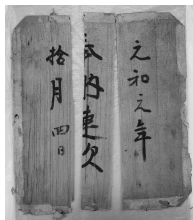 元和元年
奉納連久
拾月 四日